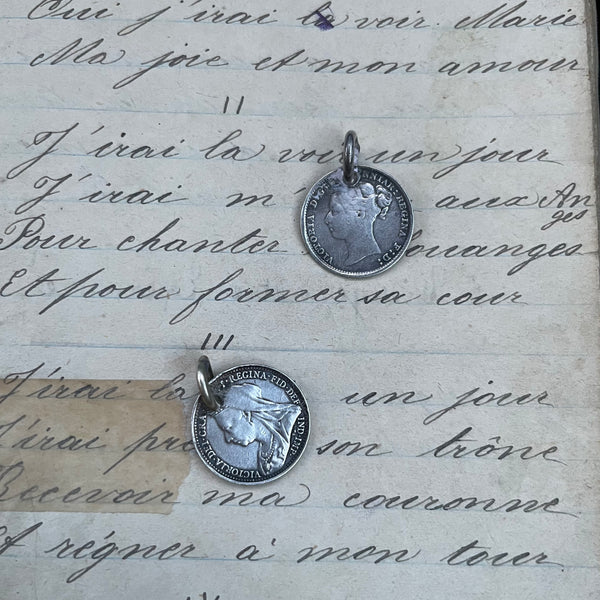 Oui j'irai la voir Marie
Ma joie et mon amour
II
J'irai la voir un jour
J'irai m' aux An
ges
Pour chanter louanges
Et pour former sa cour
III
J'irai la un jour
J'irai son trône
Recevoir ma couronne
Et régner à mon tour
IV
VICTORIA D: G: BRITANNIAR: REGINA F: D:
VICTORIA·DEI·GRA REGINA·FID·DEF·IND·IMP·